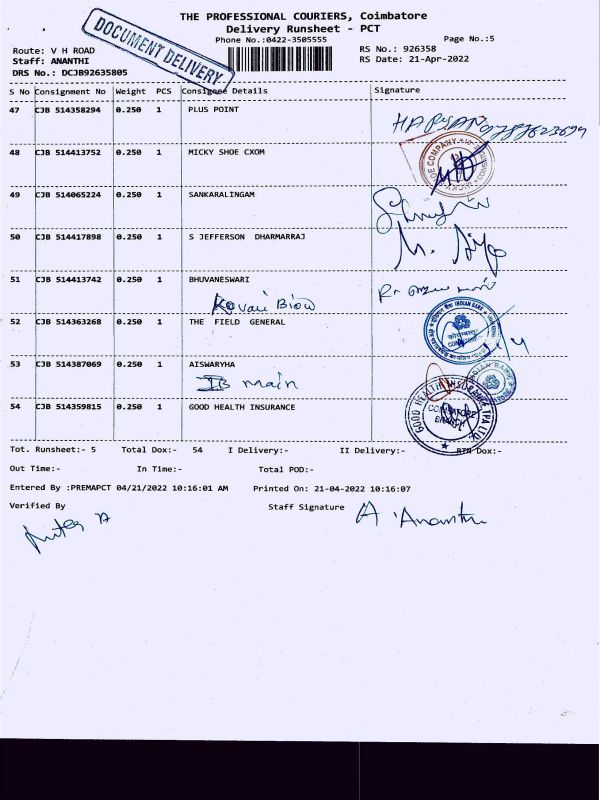 THE PROFESSIONAL COURIERS, Coimbatore
Delivery Runsheet - PCT
DOCUMENT DELIVERY
Phone No.:0422-3505555
Page No.:5
Route: V H ROAD
RS No.: 926358
Staff: ANANTHI
RS Date: 21-Apr-2022
DRS No.: DCJB92635805
S No Consignment No Weight PCS Consignee Details Signature
47 CJB 514358294 0.250 1 PLUS POINT
48 CJB 514413752 0.250 1 MICKY SHOE CXOM
49 CJB 514065224 0.250 1 SANKARALINGAM
50 CJB 514417898 0.250 1 S JEFFERSON DHARMARRAJ
51 CJB 514413742 0.250 1 BHUVANESWARI
52 CJB 514363268 0.250 1 THE FIELD GENERAL
INDIAN BANK
53 CJB 514387069 0.250 1 AISWARYHA
IB main
54 CJB 514359815 0.250 1 GOOD HEALTH INSURANCE
GOOD HEALTH INSURANCE TPA LTD.
COIMBATORE
BRANCH
Tot. Runsheet:- 5 Total Dox:- 54 I Delivery:- II Delivery:- RTN Dox:-
Out Time:- In Time:- Total POD:-
Entered By :PREMAPCT 04/21/2022 10:16:01 AM Printed On: 21-04-2022 10:16:07
Verified By Staff Signature
A Ananthi